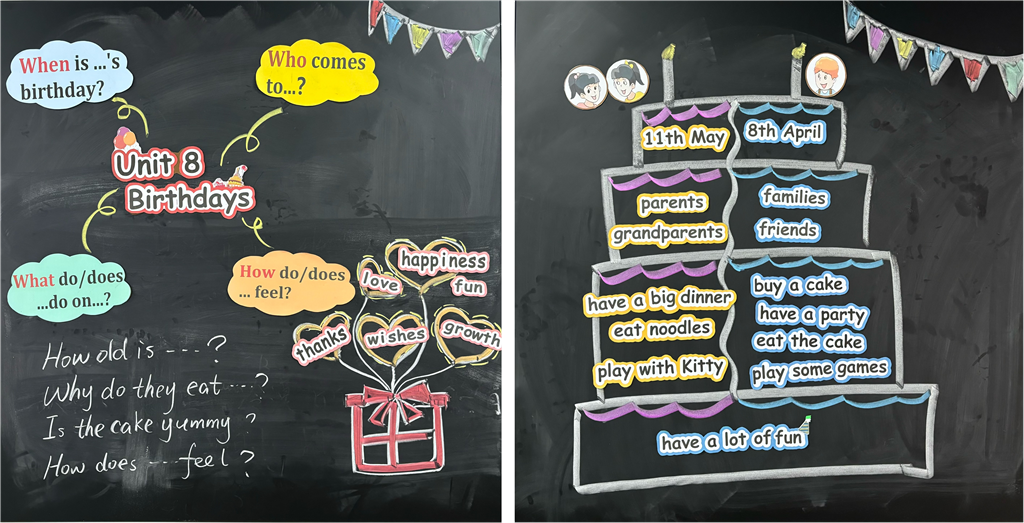 When is ...'s
birthday?
Who comes
to...?
Unit 8
Birthdays
What do/does
...do on...?
How do/does
... feel?
happiness
love
fun
thanks
wishes
growth
How old is ----?
Why do they eat ---?
Is the cake yummy?
How does --- feel?
11th May
8th April
parents
grandparents
families
friends
have a big dinner
eat noodles
play with Kitty
buy a cake
have a party
eat the cake
play some games
have a lot of fun